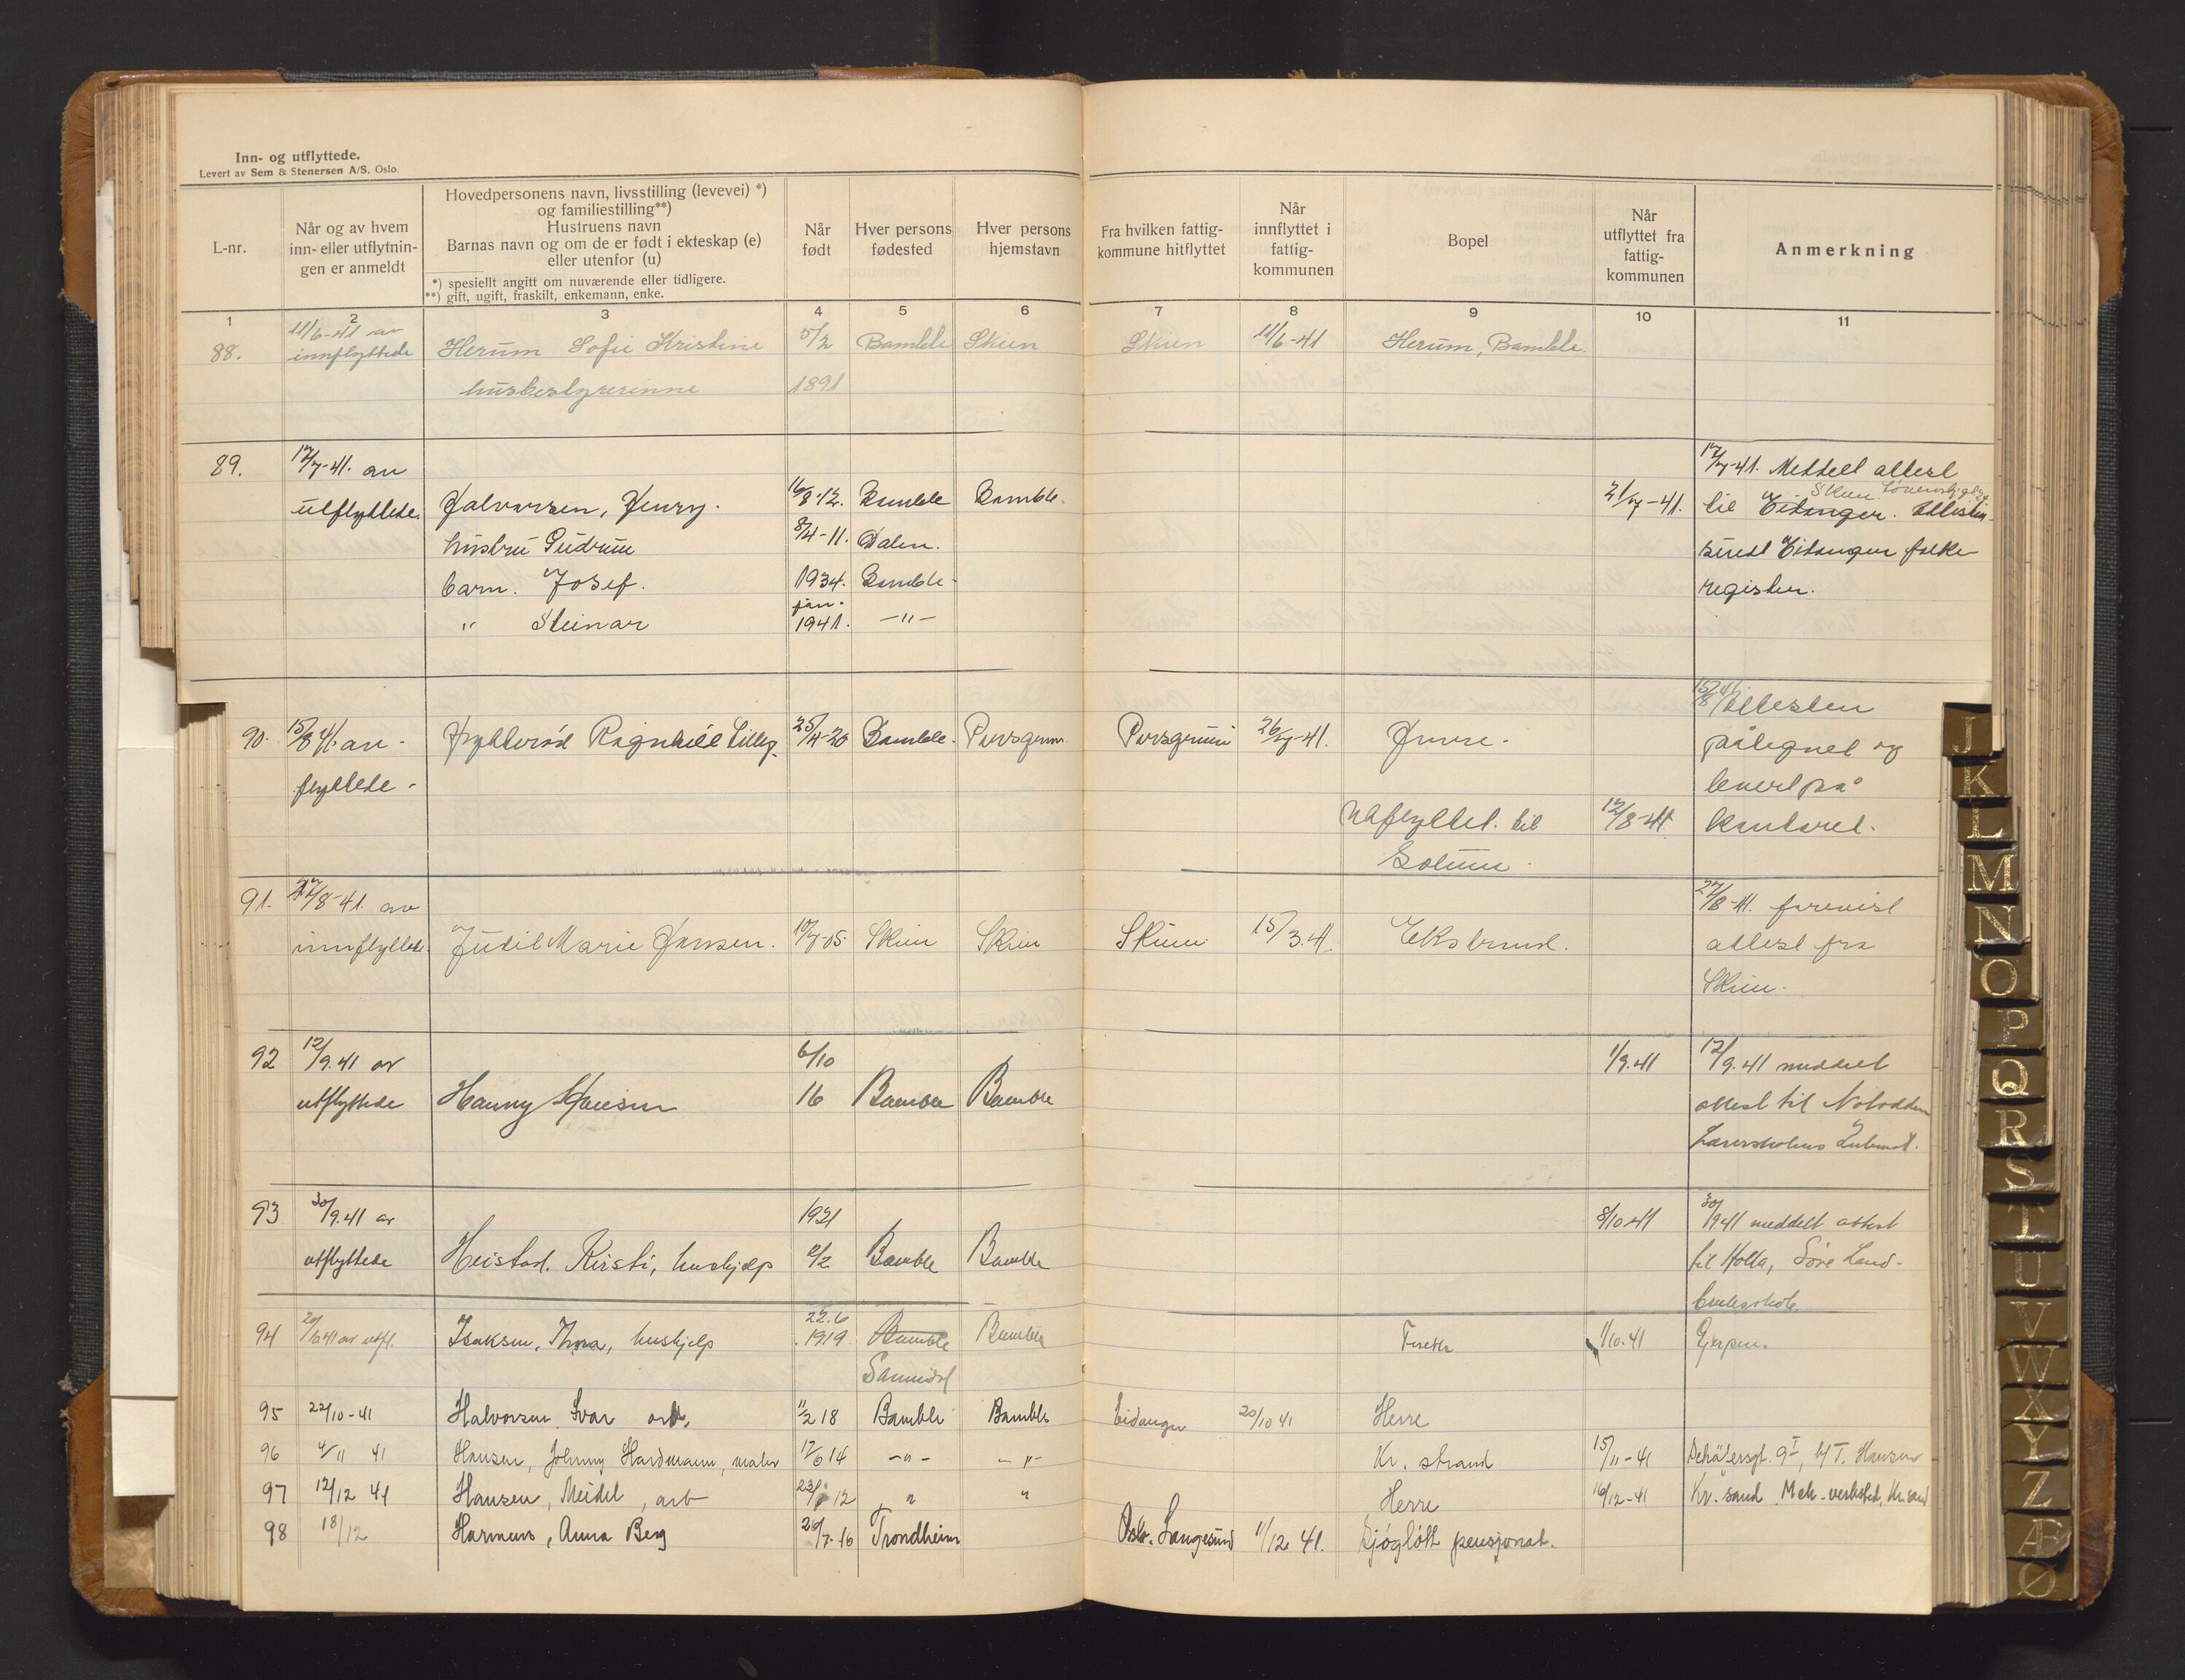 Inn- og utflyttede.
Levert av Sem & Stenersen A/S. Oslo.
L-nr.
Når og av hvem inn- eller utflytnin- gen er anmeldt
Hovedpersonens navn, livsstilling (levevei) *)
og familiestilling**)
Hustruens navn
Barnas navn og om de er født i ekteskap (e)
eller utenfor (u)
*) spesiellt angitt om nuværende eller tidligere.
**) gift, ugift, fraskilt, enkemann, enke.
Når født
Hver persons fødested
Hver persons hjemstavn
Fra hvilken fattig- kommune hitflyttet
Når innflyttet i fattig- kommunen
Bopel
Når utflyttet fra fattig- kommunen
Anmerkning
1 2 3 4 5 6 7 8 9 10 11
11/6-41 av
88. innflyttede Herum Sofie Kristine 5/2 Bamble Skien Skien 11/6-41 Herum, Bamble.
husbestyrerinne 1891
89. 17/7-41. av 17/7-41. Meddelt attest
utflyttede. Halvorsen, Henry. 16/8-12. Bamble Bamble. 21/7-41. til Eidanger. Skien
hustru Gudrun 8/4-11. Dalen. sendt Eidanger folke-
barn. Josef. 1934. Bamble- register.
" Steinar jan. 1941. -"-
15/8 41. Attesten
90. 15/8 41. av Ragnhild 25/4-20 Bamble. Porsgrunn Porsgrunn 26/7-41. Herre- påtegnet og
flyttede- levert på
Utflyttet. til 12/8-41 kontoret.
Solum.
91. 27/8-41. av 27/8-41. forevist
innflyttede. Judit Marie Hansen. 10/7-05. Skien Skien Skien 15/3.41. Eksbrund. attest fra
Skien.
92 12/9.41 av 6/10 1/9.41 12/9.41 meddelt
utflyttede Hanny Hansen 16 Bamble Bamble attest til Notodden
Lærerskolens Internat.
93 30/9.41 av 1921 8/10 41 30/9 41 meddelt attest
utflyttede Heistad. Kirsti, hushjelp 2/2 Bamble Bamble til Holla, Søve Land-
bruksskole.
94 20/6 41 av utfl. Isaksen, Thora, hushjelp 22.6 1919 Bamble Bamble 1/10.41 Gjerpen.
Sannidal
95 22/10-41 Halvorsen Ivar arb. 11/2 18 Bamble Bamble Eidanger 20/10 41 Herre
96 4/11 41 Hansen, Johnny Hardmann, maler 17/6 14 -"- -"- Kr. strand 15/11-41 9 I b/ T. Hansen
97 12/12 41 Hansen, Meidel, arb 23/1 12 " " Herre 16/12-41 Kr. sand Mek. verksted, Kr.sand
98 18/12 Harmens, Anna Berg 26/7-16 Trondheim Oslo. Langesund 11/12 41. Sjøgløtt pensjonat.
J
K
L
M
N
O
P
Q
R
S
T
U
V
W
X
Y
Z
Æ
Ø